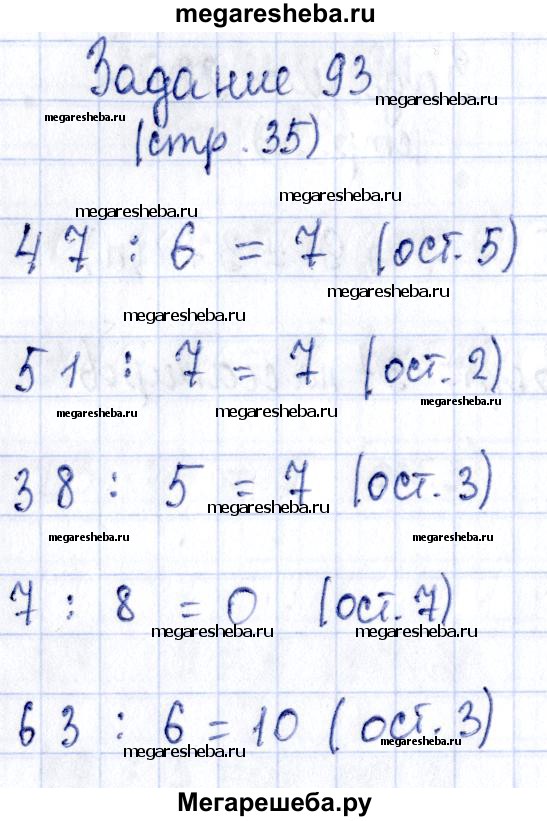 megaresheba.ru
Задание 93
megaresheba.ru
megaresheba.ru
(стр. 35)
megaresheba.ru
megaresheba.ru
47 : 6 = 7 (ост. 5)
megaresheba.ru
megaresheba.ru
51 : 7 = 7 (ост. 2)
megaresheba.ru
megaresheba.ru
megaresheba.ru
38 : 5 = 7 (ост. 3)
megaresheba.ru
megaresheba.ru
megaresheba.ru
7 : 8 = 0 (ост. 7)
megaresheba.ru
megaresheba.ru
63 : 6 = 10 (ост. 3)
megaresheba.ru
megaresheba.ru
Мегарешеба.ру